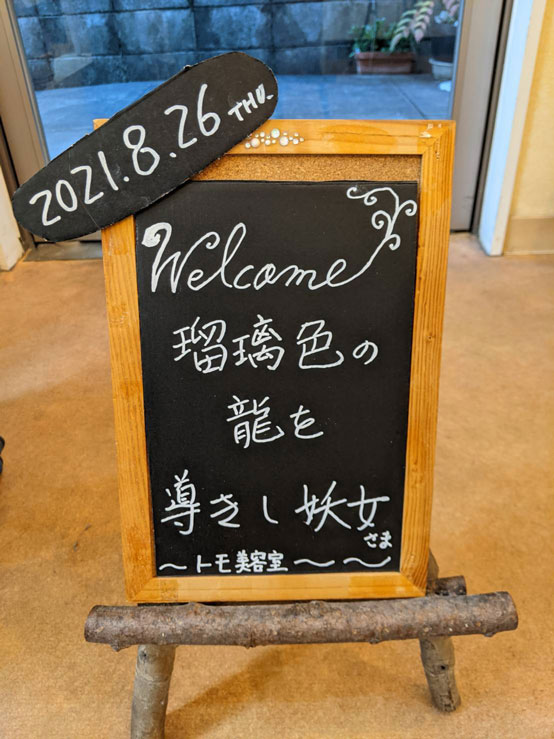 2021.8.26 THU.
Welcome
瑠璃色の
龍を
導きし妖女
さま
～トモ美容室～～